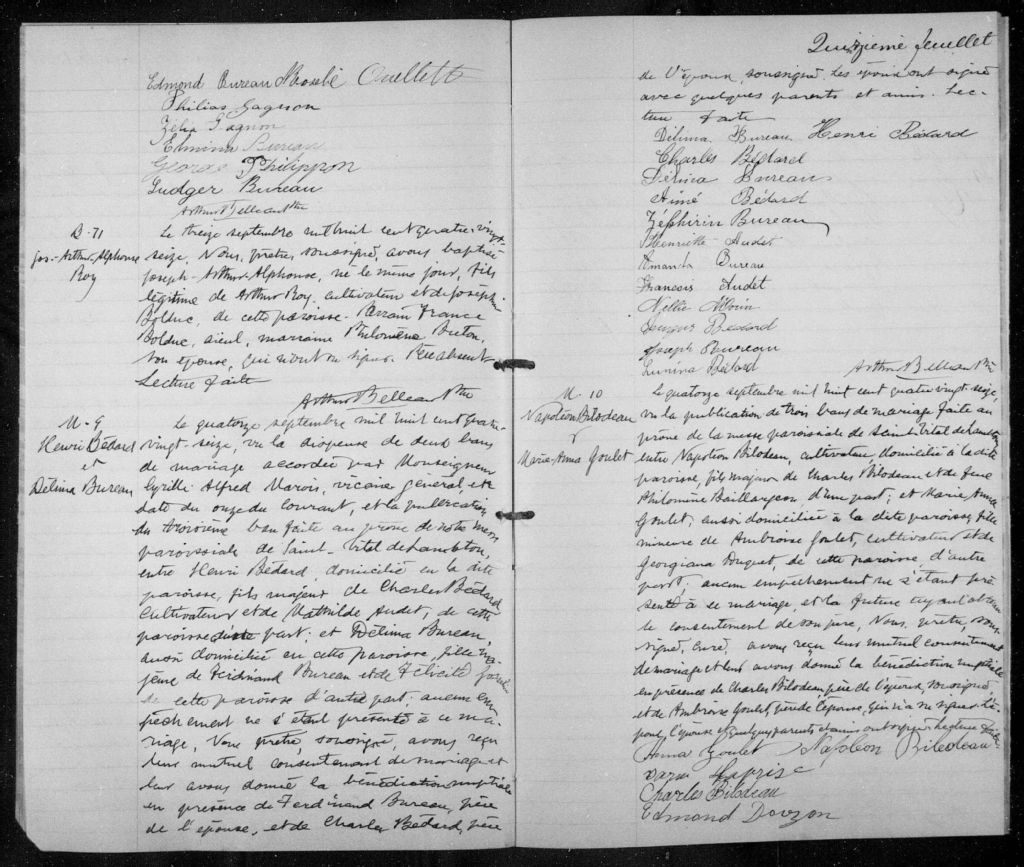 Edmond Bureau Ouellette
Philias Gagnon
Zélia Gagnon
Edmina Bureau
George Philippon
Ludger Bureau
Arthur Belleau Ptre
B. 71
Jos-Arthur-Alphonse
Roy
Le treize septembre mil huit cent quatre-vingt-
seize, Nous, prêtre, soussigné, avons baptisé
Joseph-Arthur-Alphonse, né le même jour, fils
légitime de Arthur Roy, cultivateur et de Joséphine
Bolduc, de cette paroisse. Parrain France
Bolduc, aieul, marraine Philomène Breton,
son épouse, qui n'ont su signer. Père absent
Lecture faite
Arthur Belleau Ptre
M. 9
Henri Bédard
et
Délima Bureau
Le quatorze septembre mil huit cent quatre-
vingt-seize, vu la dispense de deux bans
de mariage accordée par Monseigneur
Cyrille Alfred Marois, vicaire général, en
date du onze du courant, et la publication
du troisième ban faite au prône de notre messe
paroissiale de Saint-Vital de Lambton,
entre Henri Bédard, domicilié en la dite
paroisse, fils majeur de Charles Bédard
cultivateur et de Mathilde Audet, de cette
paroisse d'une part; et Délima Bureau,
aussi domiciliée en cette paroisse, fille ma-
jeure de Ferdinand Bureau et de Félicité
de cette paroisse d'autre part; aucun em-
pêchement ne s'étant présenté à ce ma-
riage, Nous prêtre, soussigné, avons reçu
leur mutuel consentement de mariage et
leur avons donné la bénédiction nuptiale
en présence de Ferdinand Bureau, père
de l'épouse, et de Charles Bédard, père
Quinzième feuillet
de l'époux, soussigné. Les époux ont signé
avec quelques parents et amis. Lec-
ture faite
Délima Bureau Henri Bédard
Charles Bédard
Délina Bureau
Aimé Bédard
Zéphirin Bureau
Henriette Audet
Amanda Bureau
François Audet
Nellie Morin
Bédard
Joseph Bureau
Bédard
Arthur Belleau Ptre
M. 10
Napoléon Bilodeau
et
Marie-Anna Goulet
Le quatorze septembre mil huit cent quatre vingt seize,
vu la publication de trois bans de mariage faite au
prône de la messe paroissiale de Saint-Vital de Lambton
entre Napoléon Bilodeau, cultivateur domicilié à la dite
paroisse, fils majeur de Charles Bilodeau et de feue
Philomène Baillargeon d'une part; et Marie Anna
Goulet, aussi domiciliée à la dite paroisse, fille
mineure de Ambroise Goulet, cultivateur et de
Georgiana Douquet, de cette paroisse, d'autre
part. aucun empêchement ne s'étant pré-
senté à ce mariage, et la future ayant obtenu
le consentement de son père, Nous, prêtre, sous-
signé, curé, avons reçu leur mutuel consentement
de mariage et leur avons donné la bénédiction nuptiale
en présence de Charles Bilodeau, père de l'époux, soussigné
et de Ambroise Goulet, père de l'épouse, qui n'a su signer. L'é-
poux, l'épouse et quelques parents et amis ont signé. Lecture faite.
Anna Goulet Napoléon Bilodeau
Laprise
Charles Bilodeau
Edmond Doyon